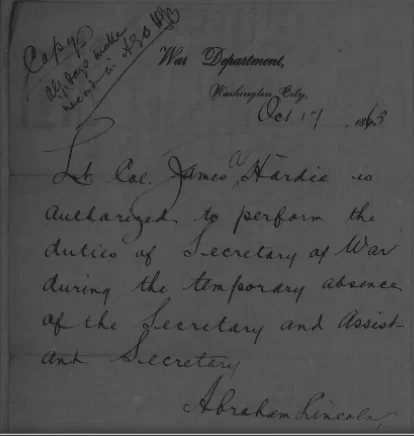 Copy
War Department,
Washington City,
Oct 17, 1863
Lt Col. James A Hardie is
authorized to perform the
duties of Secretary of War
during the temporary absence
of the Secretary and Assist
ant Secretary
Abraham Lincoln,